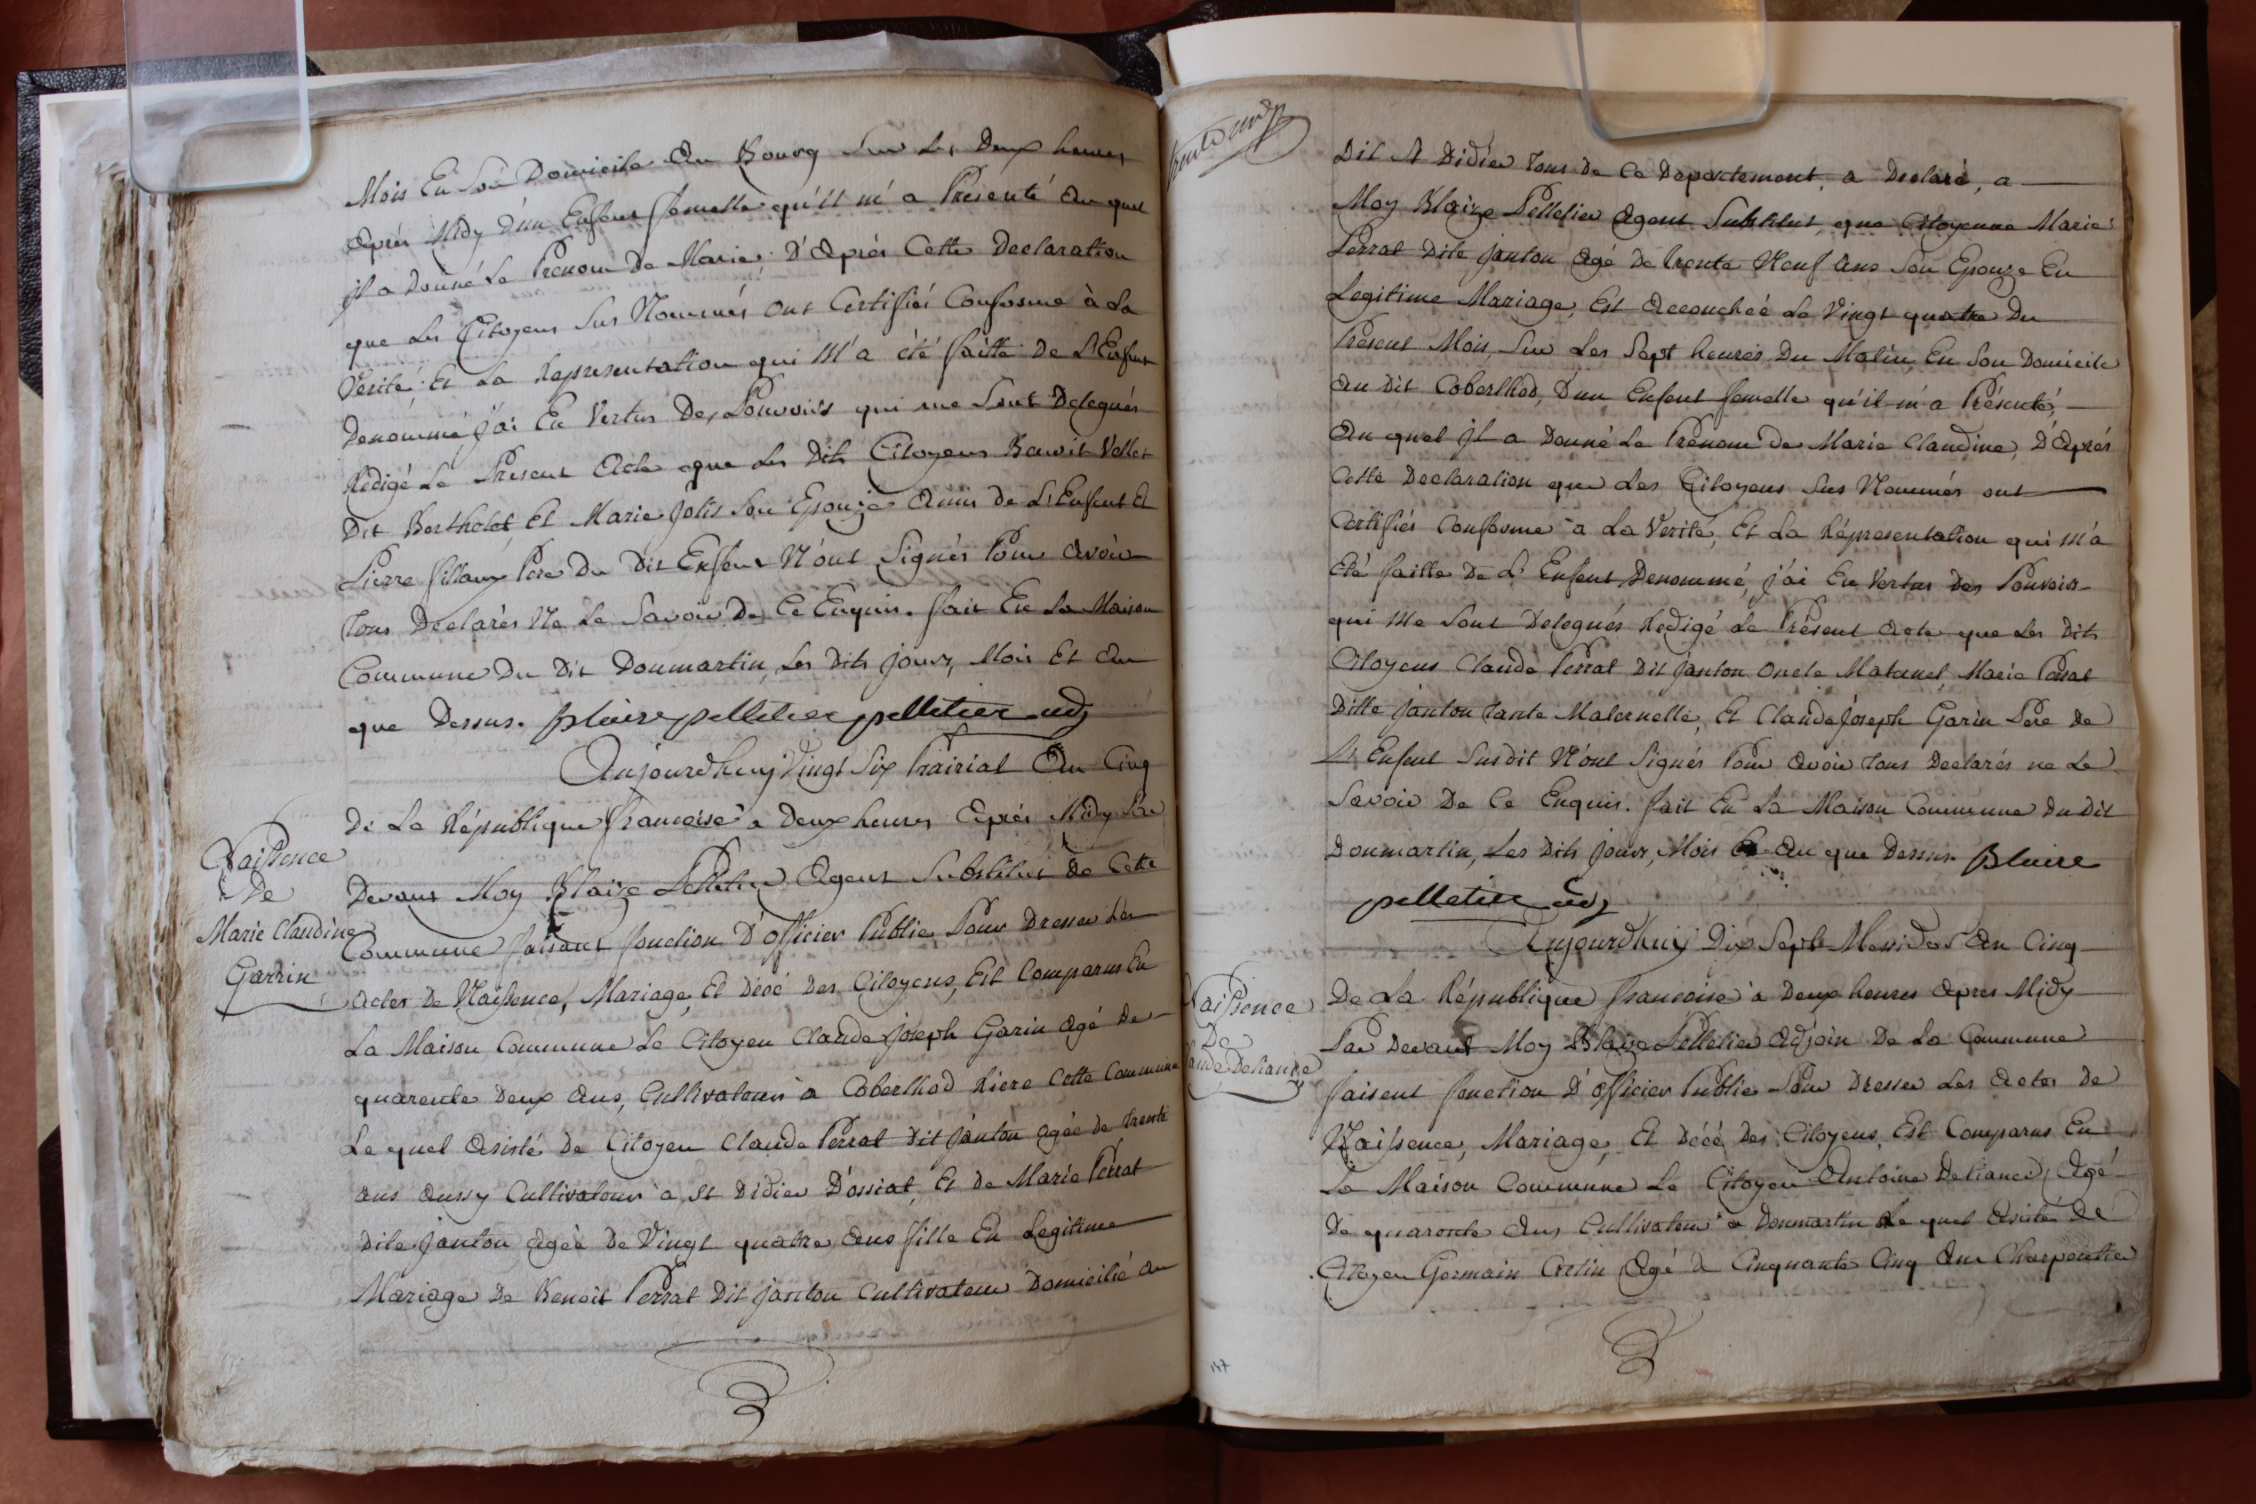 Mois En Son Domicile Au Bourg Sur Les Deux heures
Après Midy D'un Enfent femelle qu'il m'a Présenté Au quel
jl a Donné Le Prenom De Marie, D'Après Cette Declaration
que Les Citoyens Sus Nommés ont Certifiés Conforme à La
Verité, Et La Representation qui M'a été faitte de L'Enfent
Denommé j'ai En Vertus Des Pouvoirs qui me Sont Delegués
Redigé Le Present Acte que Les Dits Citoyens Benoit Vollet
Dit Bertholet Et Marie Jolis Son Epouze Amis de L'Enfent Et
Pierre fillaux Pere Du Dit Enfent N'ont Signés Pour Avoir
Tous Declarés Ne Le Savoir De Ce Enquis. fait En La Maison
Commune Du Dit Donmartin, Les Dits jours, Mois Et An
que Dessus. blaise pelletier pelletier adj
Aujourdhuy Vingt Six Prairial An Cinq
De La République francoise a Deux heures Après Midy Par
Devant Moy Blaize Pelletier Agent Substitut de Cette
Commune faisant fonction D'officier Public Pour Dresser Les
Actes De Naissence, Mariage, Et Décé Des Citoyens, Est Comparus En
La Maison Commune Le Citoyen Claude joseph Garin Agé De
quarente Deux Ans, Cultivateur a Coberthod Riere Cette Commune
Le quel Asisté De Citoyen Claude Perrat Dit janton agée de trente
ans Aussy Cultivateur a St Didier D'ossiat, Et De Marie Perrat
Dite janton Agée De Vingt quatre Ans fille En Legitime
Mariage De Benoit Perrat Dit janton Cultivateur Domicilié Au
Naissence
De
Marie Claudine
Garrin
Dit St Didier Tous De Ce Departement, a Declaré, a
Moy Blaize Pelletier Agent Substitut, que Citoyenne Marie
Perrat Dite janton Agé De trente Neuf Ans Son Epouze En
Legitime Mariage, Est Accouchée Le Vingt quatre Du
Présent Mois, Sur Les Sept heures Du Matin, En Son Domicile
Au Dit Coberthod, D'un Enfent femelle qu'il m'a Présenté,
Au quel jl a Donné Le Prenom De Marie Claudine, D'Après
Cette Declaration que Les Citoyens Sus Nommés ont
Certifiés Conforme a La Verité, Et La Représentation qui M'a
été faitte De L'Enfent Denommé, j'ai En Vertus Des Pouvoirs
qui Me Sont Delegués Redigé Le Présent Acte que Les Dits
Citoyens Claude Perrat Dit janton oncle Maternel Marie Perrat
Ditte janton Tante Maternelle, Et Claude joseph Garin Pere De
L'Enfent Susdit N'ont Signés Pour Avoir Tous Declarés ne Le
Savoir De Ce Enquis. fait En La Maison Commune Du Dit
Donmartin, Les Dits jours, Mois Et An que Dessus. blaise
pelletier adj
Aujourdhuy Dix Sept Messidor An Cinq
De La République francoise a Deux heures Apres Midy
Par Devant Moy Blaize Pelletier Adjoin De La Commune
faisent fonction D'officier Public Pour Dresser Les Actes De
Naissence, Mariage, Et Décé Des Citoyens, Est Comparus En
La Maison Commune Le Citoyen Antoine Deliance, Agé
De quarente Ans Cultivateur a Donmartin Le quel Asisté De
Citoyen Germain Cretin Agé De Cinquante Cinq Ans Charpentier
Naissence
De
147